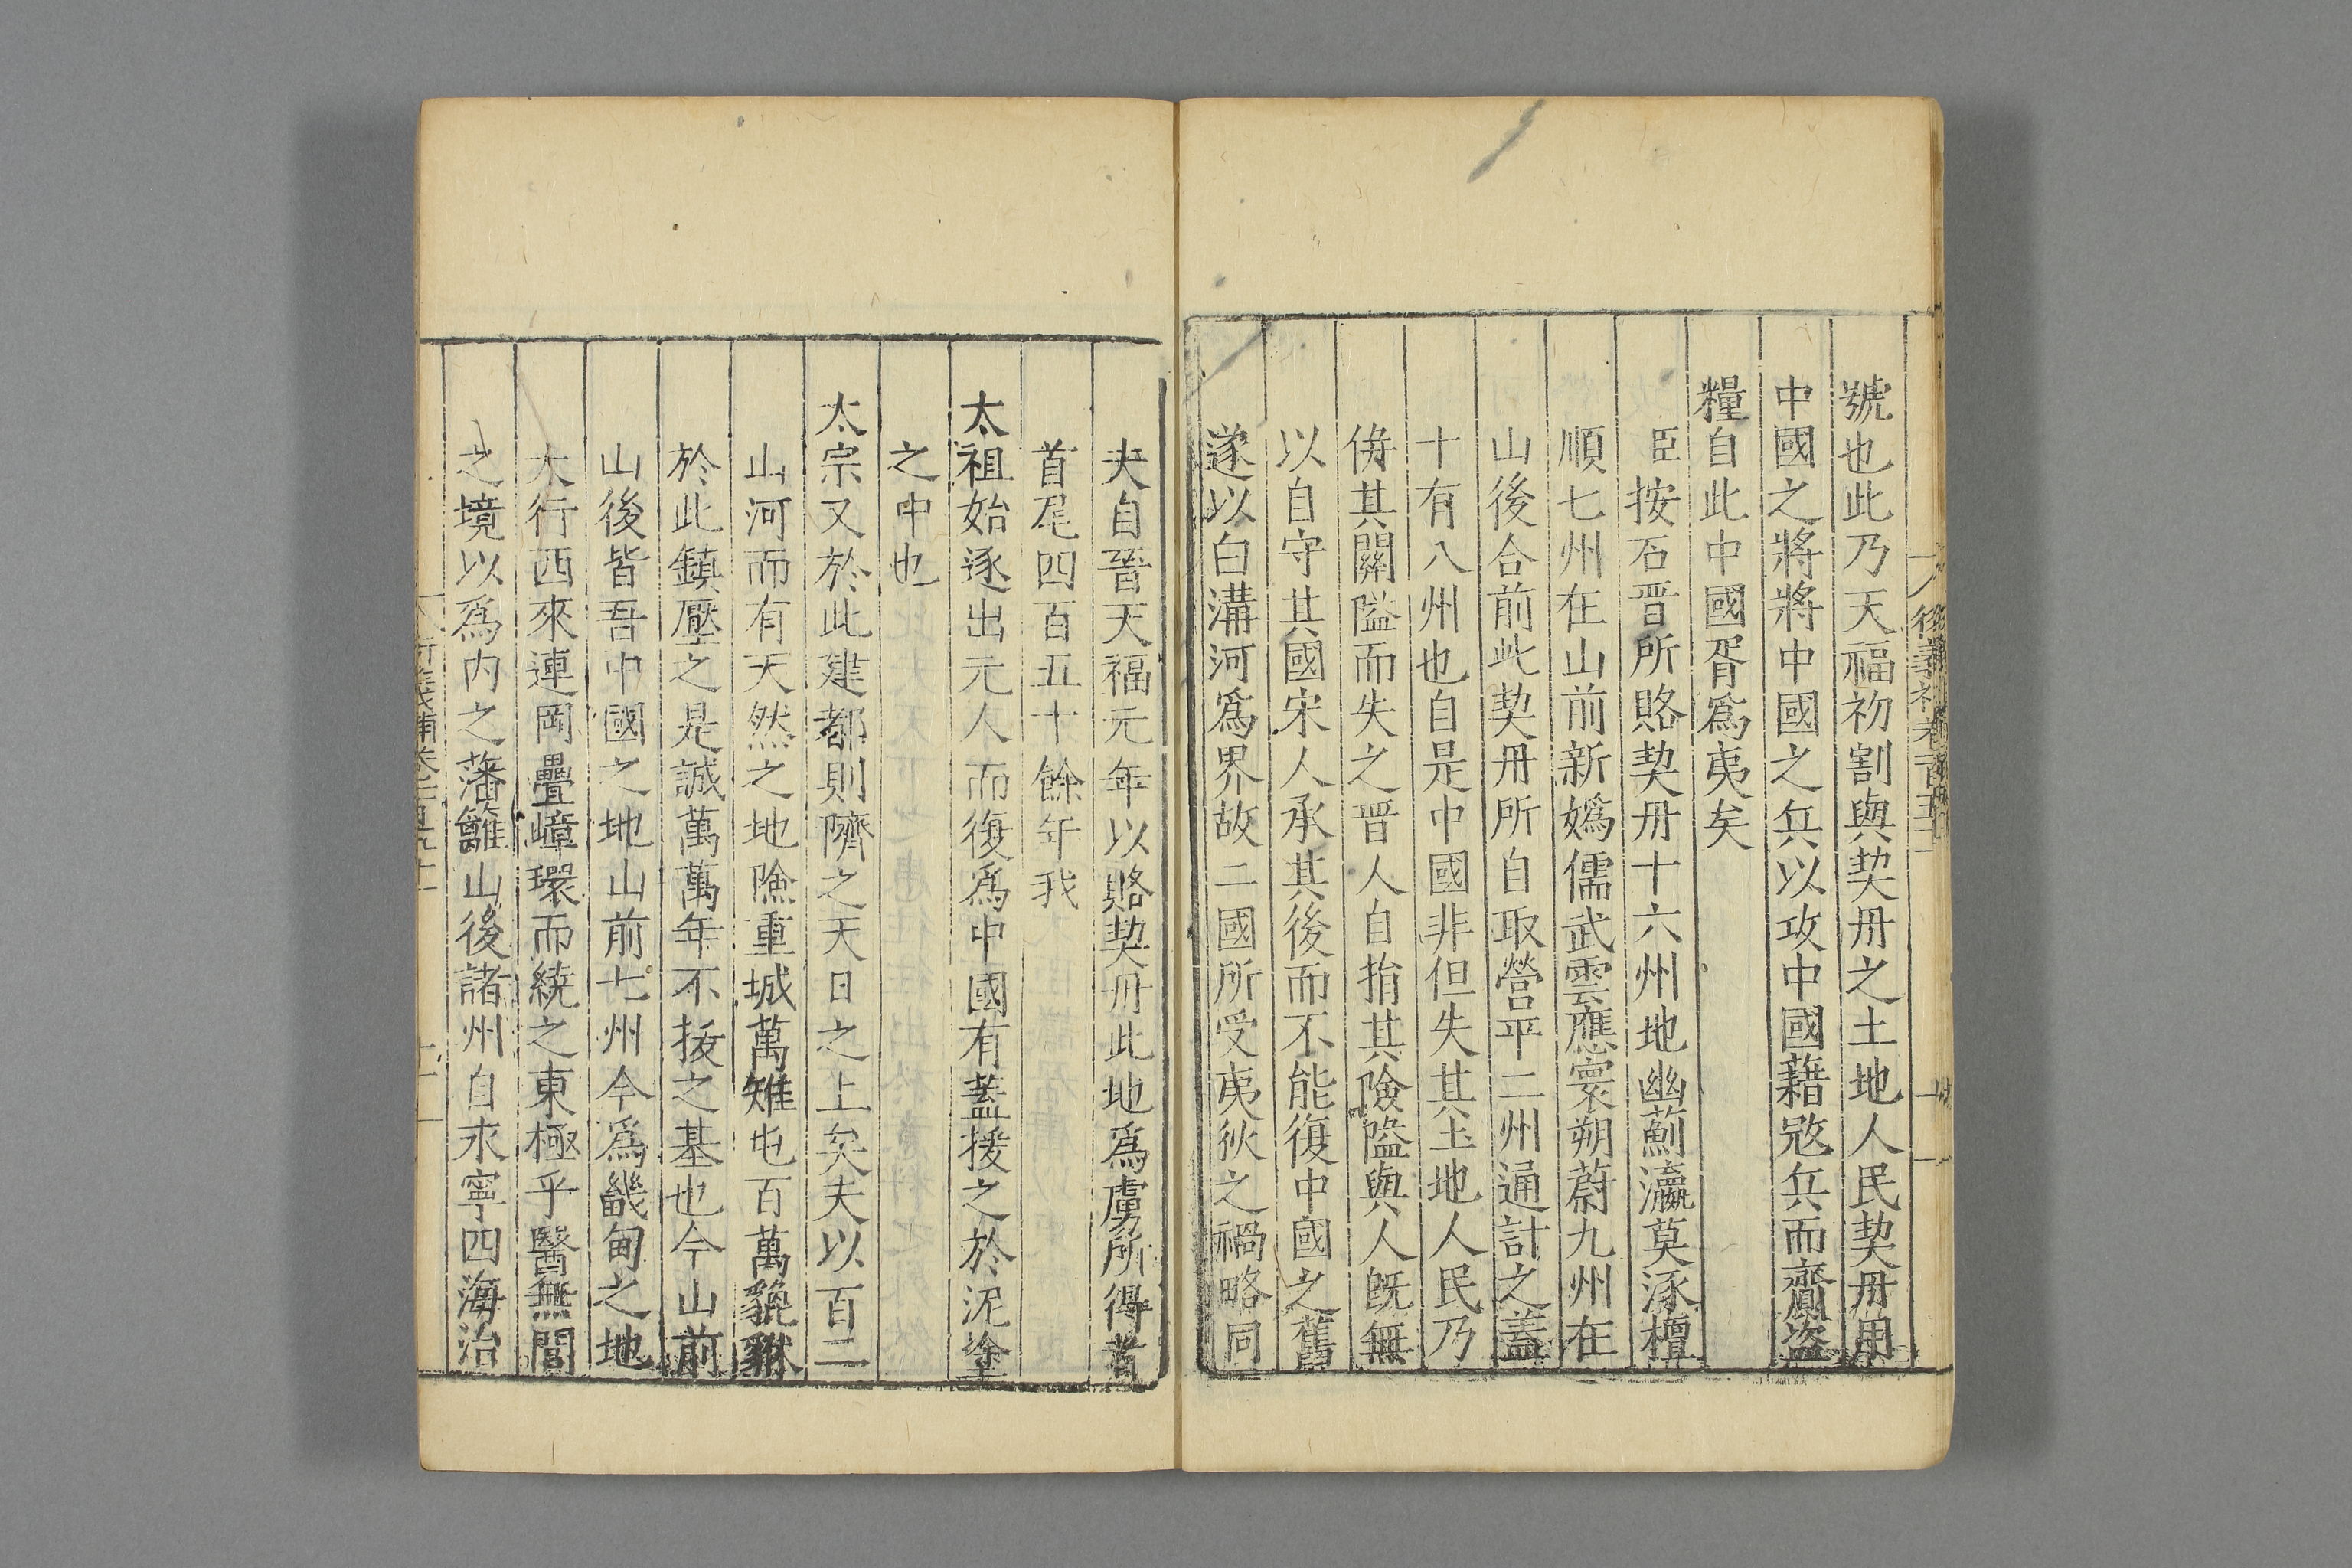 號也此乃天福初割與契丹之土地人民契丹用
中國之將將中國之兵以攻中國藉寇兵而齎盜
糧自此中國胥爲夷矣
臣按石晉所賂契丹十六州地幽薊瀛莫涿檀
順七州在山前新嬀儒武雲應寰朔蔚九州在
山後合前此契丹所自取營平二州通計之蓋
十有八州也自是中國非但失其土地人民乃
倂其關隘而失之晉人自捐其險隘與人旣無
以自守其國宋人承其後而不能復中國之舊
遂以白溝河爲界故二國所受夷狄之禍略同
夫自晉天福元年以賂契丹此地爲虜所得者
首尾四百五十餘年我
太祖始逐出元人而復爲中國有蓋援之於泥塗
之中也
太宗又於此建都則隮之天日之上矣夫以百二
山河而有天然之地險重城萬雉屯百萬貔貅
於此鎮壓之是誠萬萬年不拔之基也今山前
山後皆吾中國之地山前七州今爲畿甸之地
太行西來連岡疊嶂環而繞之東極乎醫無閭
之境以爲内之藩籬山後諸州自永寧四海治